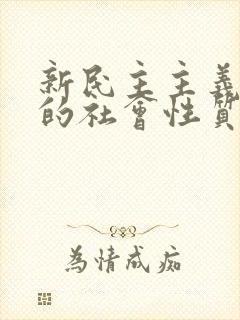 新民主主義
的社會性質
為情成痴